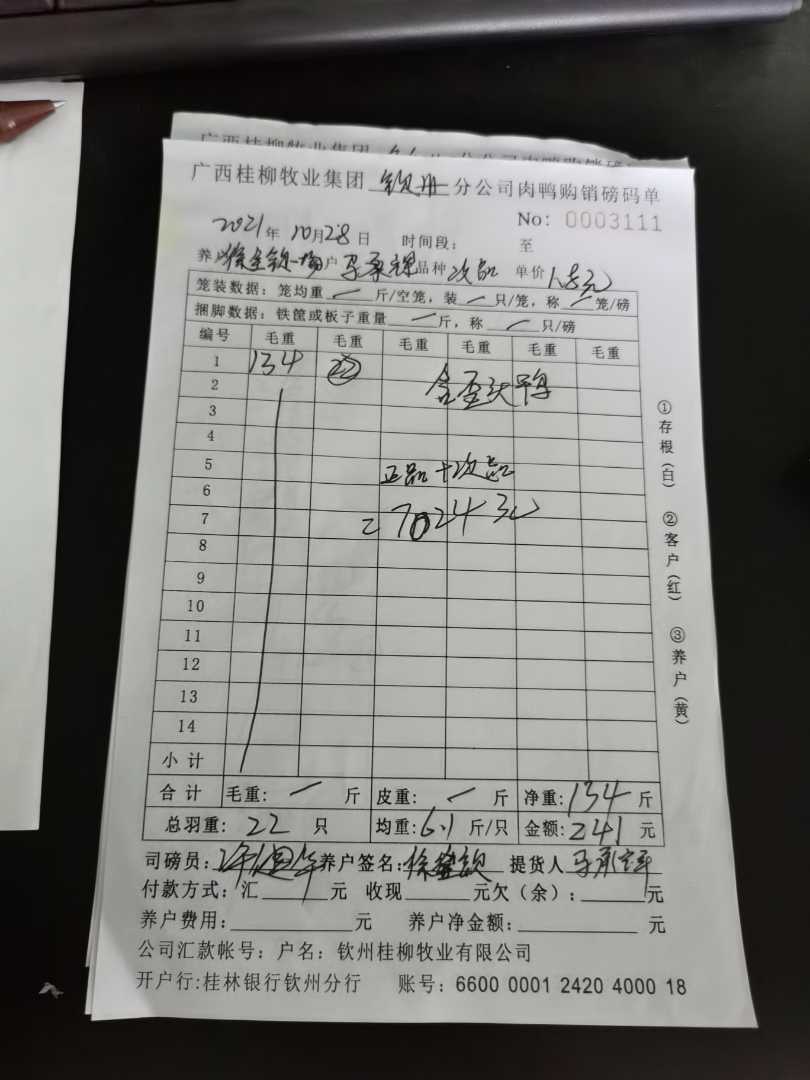 广西桂柳牧业集团 分公司肉鸭购销磅码单
广西桂柳牧业集团 钦州 分公司肉鸭购销磅码单
No: 0003111
2021年 10月28日 时间段: 至
养 户 品种 次品 单价 1.8元
笼装数据: 笼均重 一 斤/空笼, 装 一 只/笼, 称 一 笼/磅
捆脚数据: 铁筐或板子重量 一 斤, 称 一 只/磅
编号 毛重 毛重 毛重 毛重 毛重 毛重
1 134 22
2 含歪头鸭
3
4
5 正品+次品
6
7 =7024元
8
9
10
11
12
13
14
小计
合计 毛重: 一 斤 皮重: 一 斤 净重: 134 斤
总羽重: 22 只 均重: 6.1 斤/只 金额: 241 元
司磅员: 养户签名: 提货人
付款方式: 汇 元 收现 元欠(余): 元
养户费用: 元 养户净金额: 元
公司汇款帐号: 户名: 钦州桂柳牧业有限公司
开户行:桂林银行钦州分行 账号: 6600 0001 2420 4000 18
①存根(白) ②客户(红) ③养户(黄)